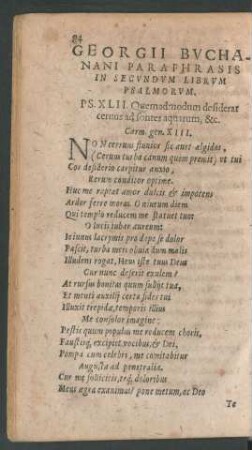 84
GEORGII BVCHA-
NANI PARAPHRASIS
IN SECVNDVM LIBRVM
PSALMORVM.
PS. XLII. Quemadmodum desiderat
ceruus ad fontes aquarum, &c.
Carm. gen. XIII.
NON ceruus fluuios sic auet algidos,
(Ceruus turba canum quem premit) vt tui
Cor desiderio carpitur anxio,
Rerum conditor optime.
Huc me raptat amor dulcis & impotens
Ardor ferre moras. O niueum diem
Qui templo reducem me statuet tuo!
O lucis iubar aureum!
Ieiunum lacrymis pro dape se dolor
Pascit, turba meis dum malis
Illudens rogat, Heus iste tuus Deus
Cur nunc deserit exulem?
At rursus bonitas quum subijt tua,
Et menti auxilij certa fides tui
Illuxit trepidæ, temporis illius
Me consolor imagine:
Festis quum populus me reducem choris,
Faustisq; excipiet vocibus, & Dei,
Pompa cum celebri, me comitabitur
Augusta ad penetralia.
Cur me sollicitis, teq; doloribus
Mens ægra exanimas? pone metum, ac Deo
Te